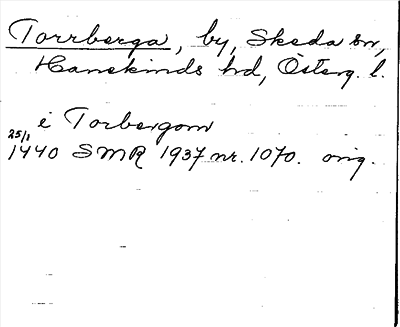 Torrberga, by, Skeda sn,
Hanekinds hd, Österg. l.
i Torbergom
25/1 1440 SMR 1937 nr. 1070. orig.